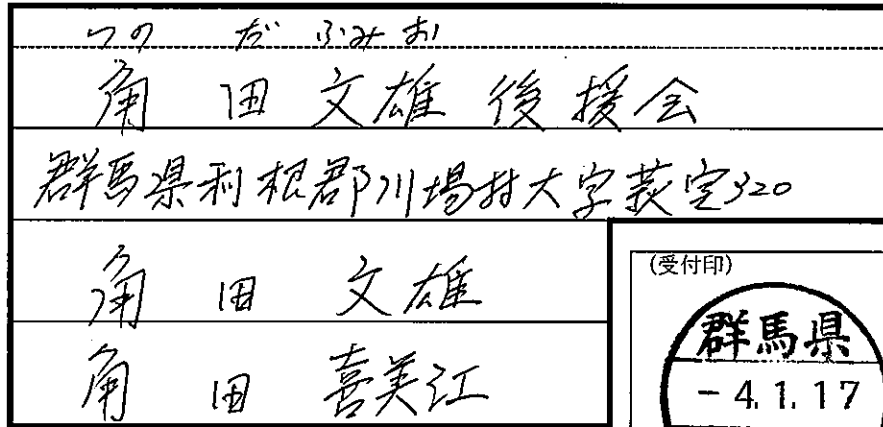 つのだ ふみお
角田文雄後援会
群馬県利根郡川場村大字萩室320
角田 文雄
角田 喜美江
(受付印)
群馬県
-4.1.17